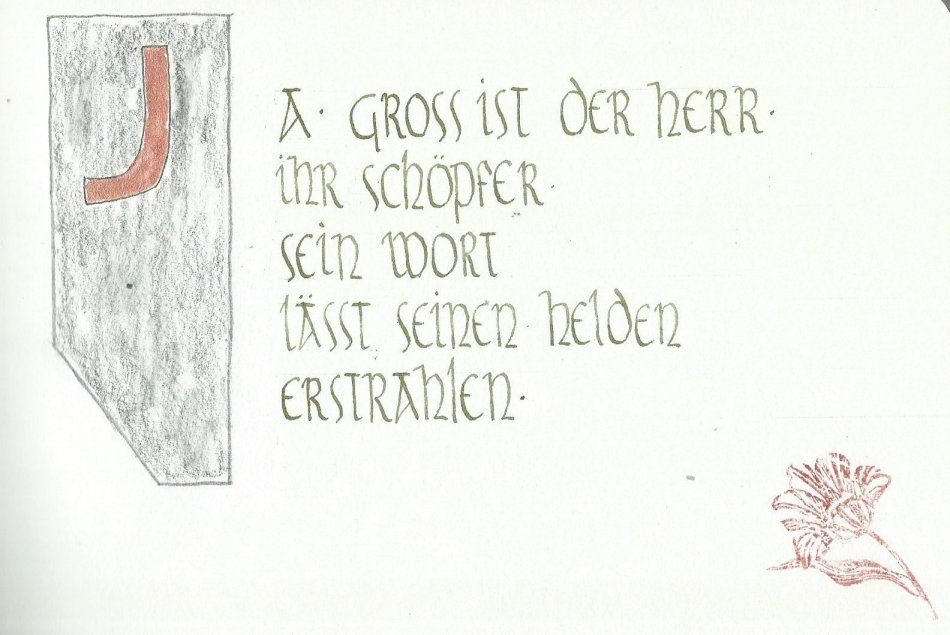 JA· GROSS IST DER HERR·
IHR SCHÖPFER·
SEIN WORT
LÄSST SEINEN HELDEN
ERSTRAHLEN·